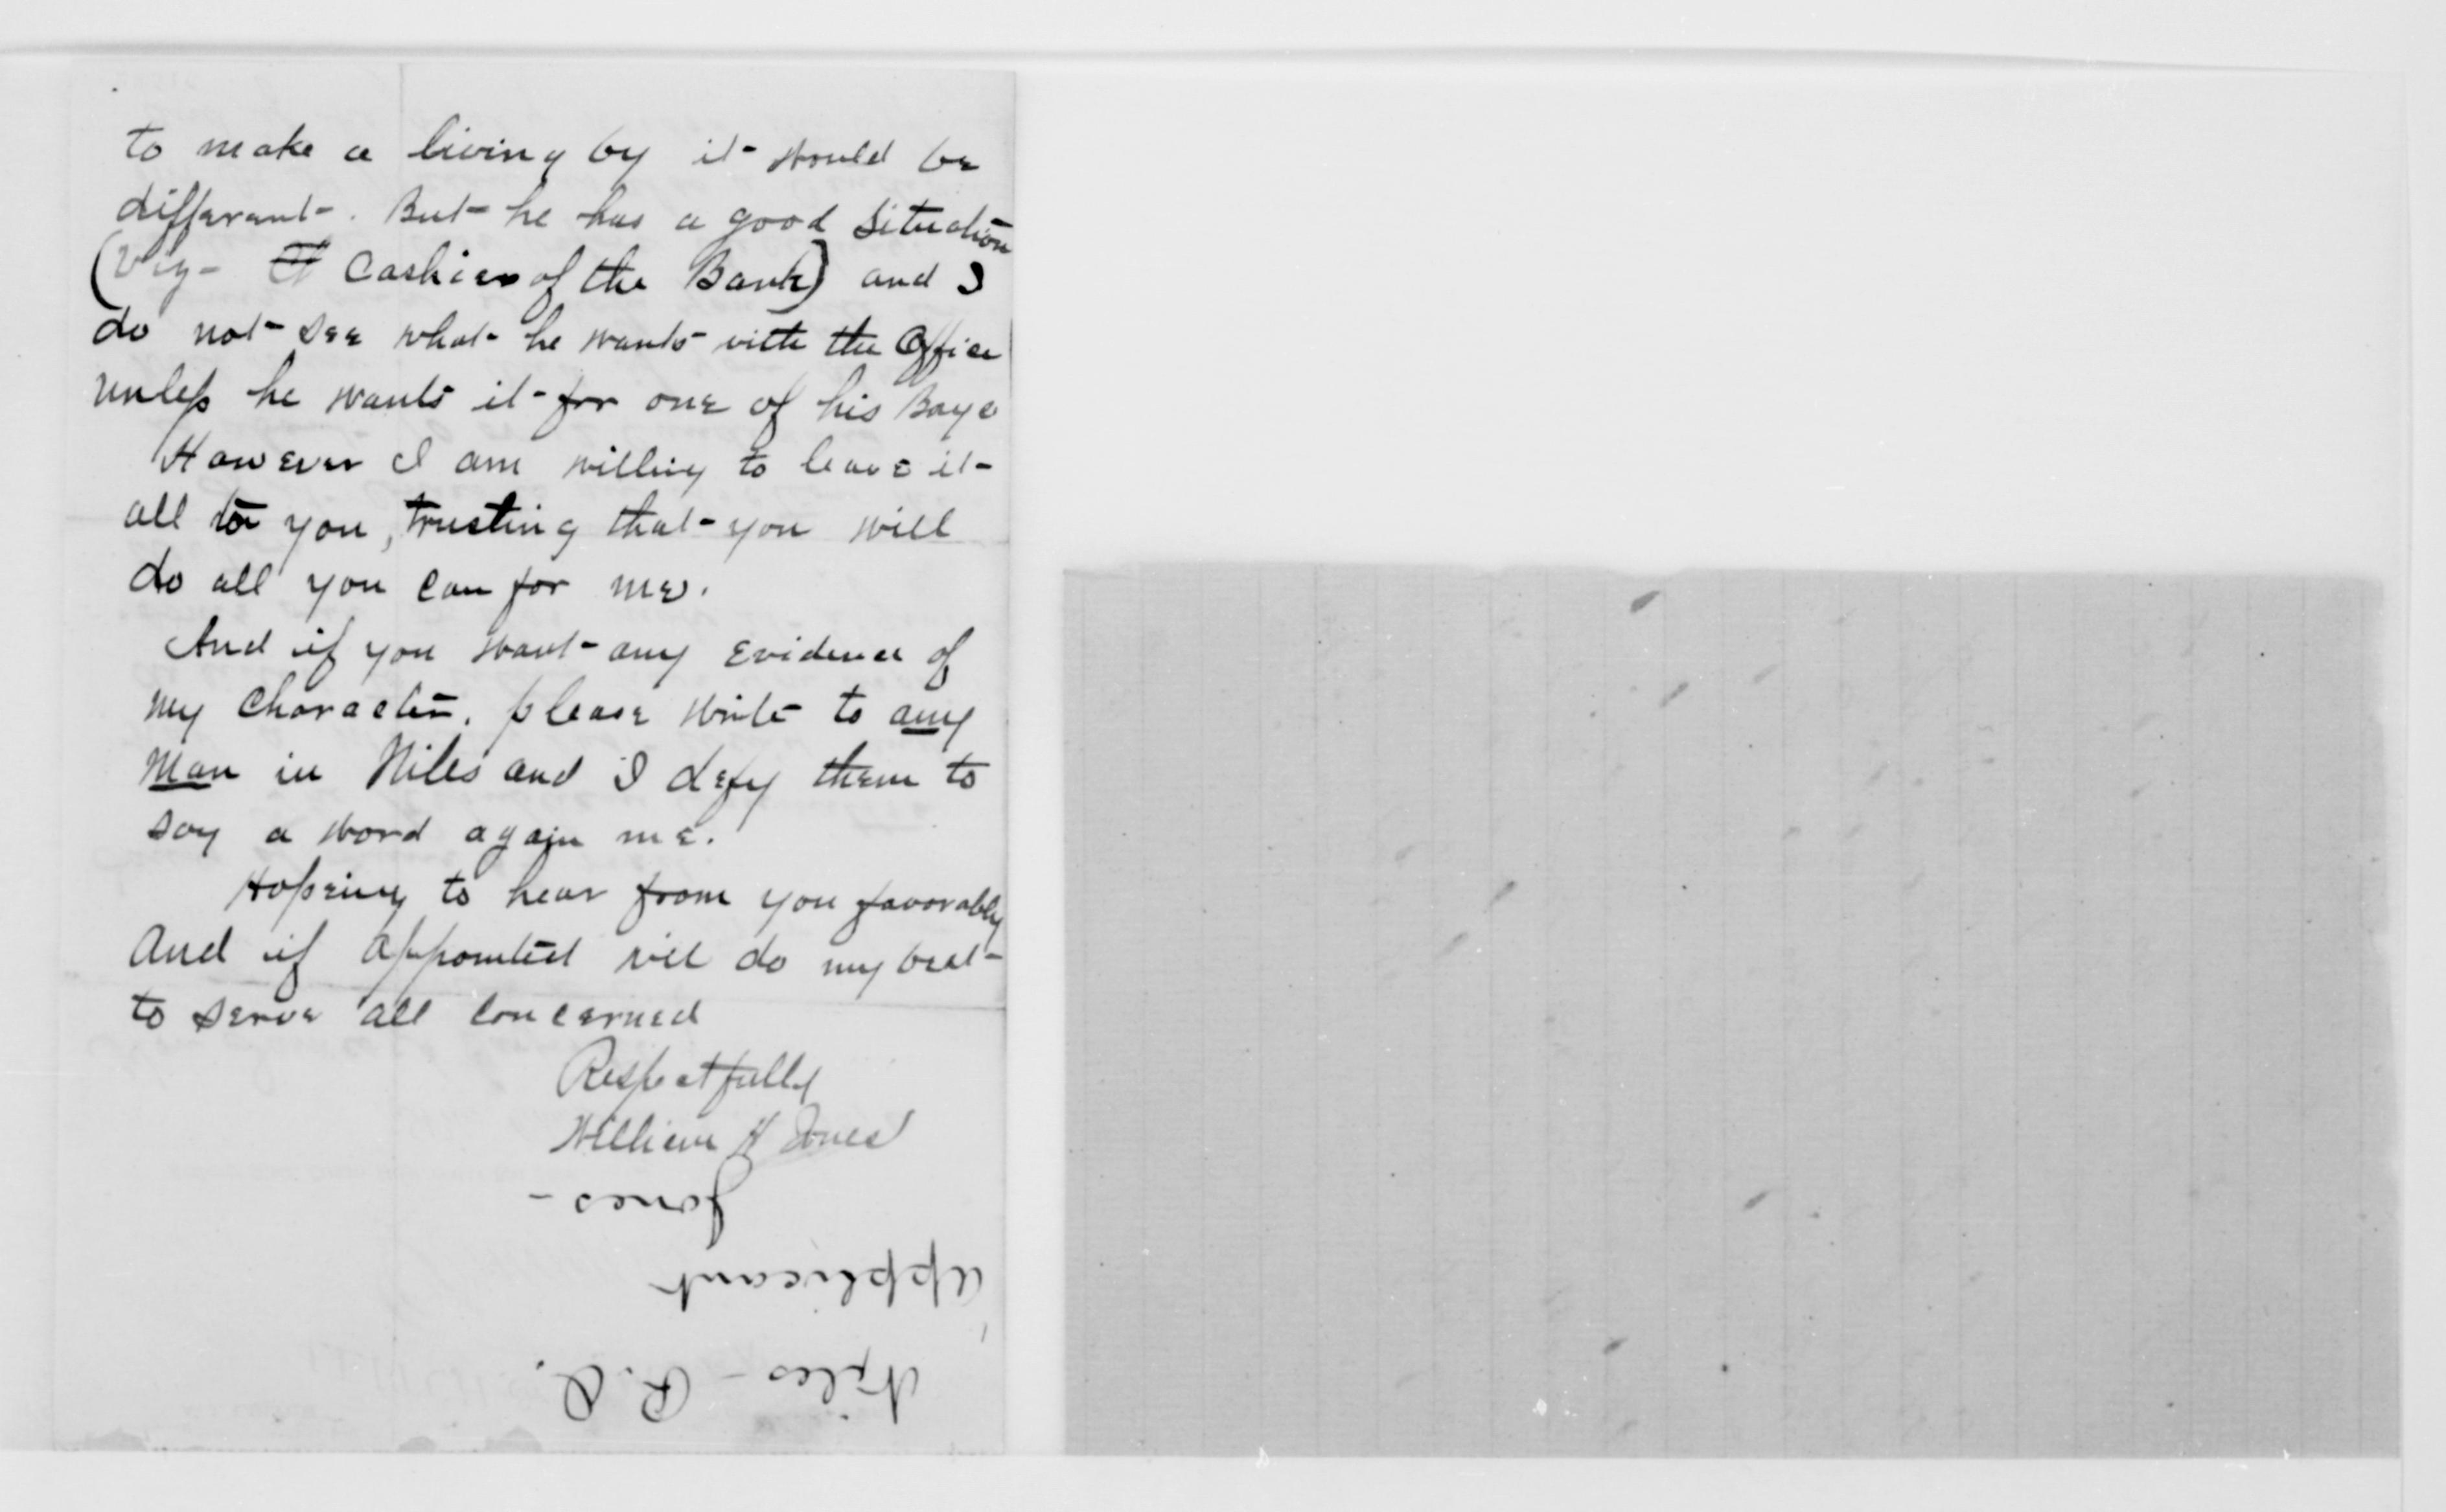 to make a living by it would be
differant. But he has a good situation
(viz- Cashier of the Bank) and I
do not see what he wants with the Office
unless he wants it for one of his Boys
However I am willing to leave it
all to you, trusting that you will
do all you can for me.
And if you want any Evidence of
my Character, please write to any
Man in Niles and I defy them to
say a word again me.
Hopeing to hear from you favorably
And if appointed will do my best
to serve all Concerned
Respectfully
William H Jones
Jones -
Applicant
Niles - P.O.